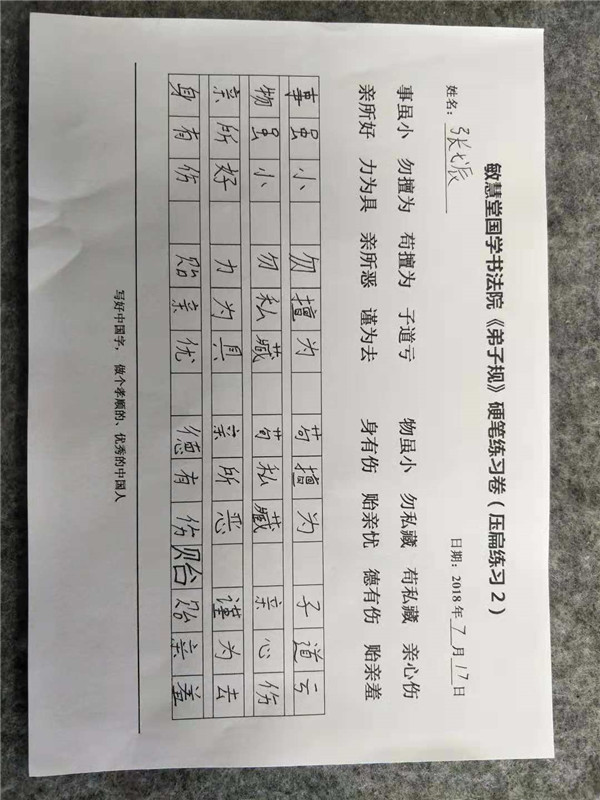 敏慧堂国学书法院《弟子规》硬笔练习卷（压扁练习2）
姓名：张 辰 日期：2018年7月17日
事虽小 勿擅为 苟擅为 子道亏 物虽小 勿私藏 苟私藏 亲心伤
亲所好 力为具 亲所恶 谨为去 身有伤 贻亲忧 德有伤 贻亲羞
事虽小 勿擅为 苟擅为 子道亏
物虽小 勿私藏 苟私藏 亲心伤
亲所好 力为具 亲所恶 谨为去
身有伤 贻亲优 德有伤贻贻亲羞
写好中国字，做个孝顺的、优秀的中国人